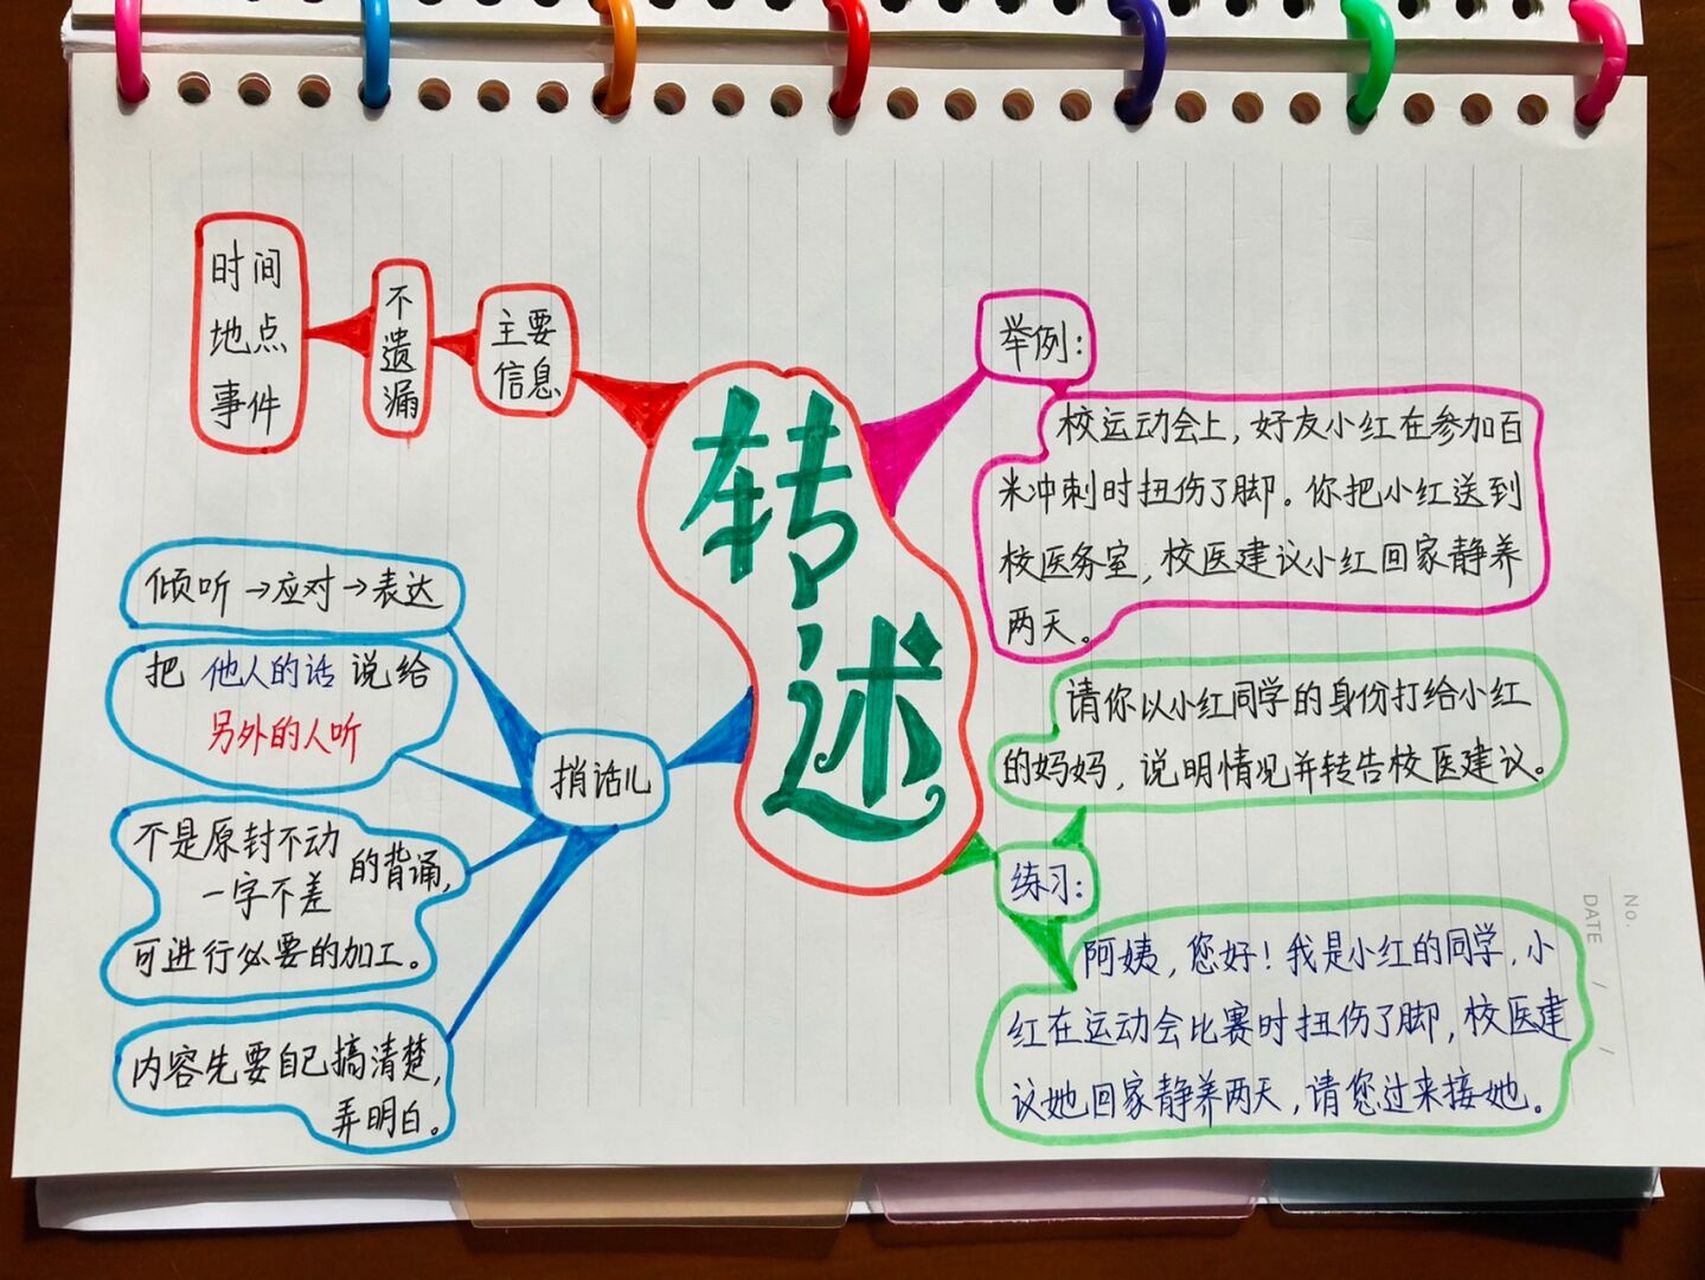 转
述
主要
信息
不
遗
漏
时间
地点
事件
捎话儿
倾听→应对→表达
把 他人的话 说给
另外的人听
不是原封不动
一字不差
的背诵,
可进行必要的加工。
内容先要自己搞清楚,
弄明白。
举例:
校运动会上,好友小红在参加百
米冲刺时扭伤了脚。你把小红送到
校医务室,校医建议小红回家静养
两天。
练习:
请你以小红同学的身份打给小红
的妈妈,说明情况并转告校医建议。
阿姨,您好!我是小红的同学,小
红在运动会比赛时扭伤了脚,校医建
议她回家静养两天,请您过来接她。
No.
DATE / /